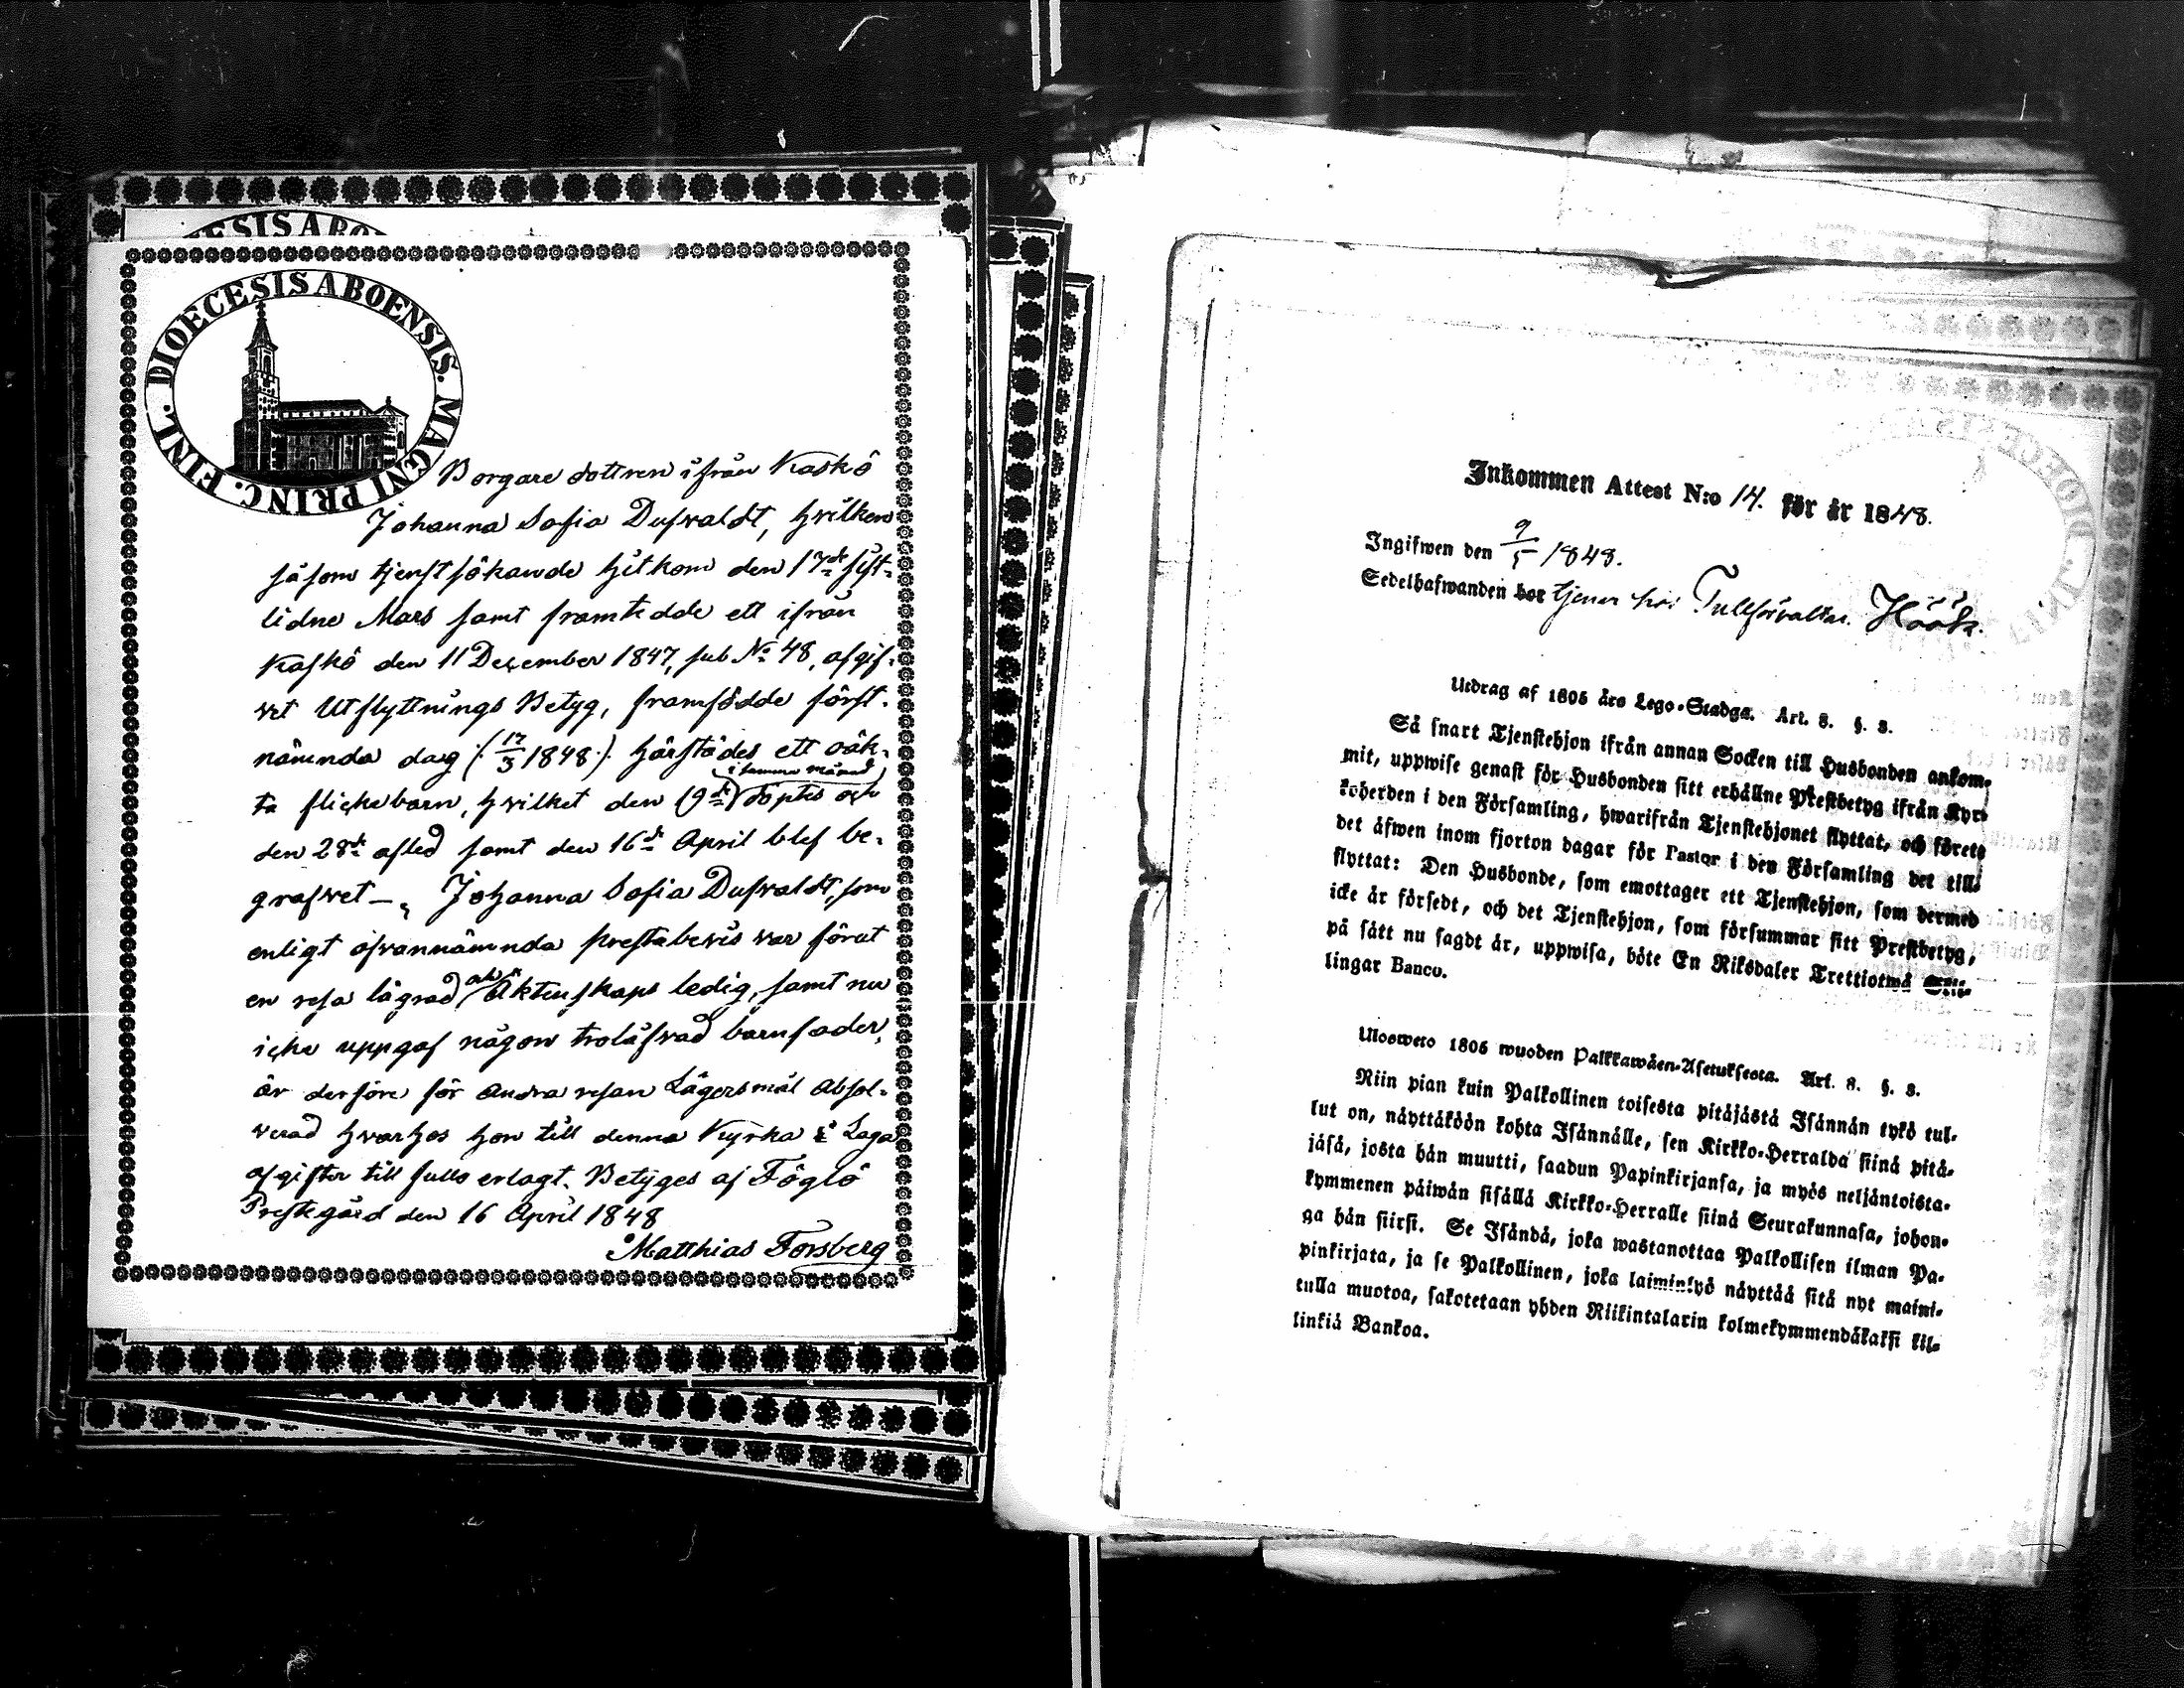 DIOECESIS ABO
DIOECESIS ABOENSIS. MAGNI PRINC. FINL.
Borgare dottren ifrån Kaskö
Johanna Sofia Dufvaldt, hvilken
såsom tjenstsökande hitkom den 17de sist-
lidne Mars samt framtedde ett ifrån
Kaskö den 11 December 1847, sub No 48, afgif-
vet Utflyttnings Betyg, framfödde först-
nämnda dag (: 17/3 1848 :) härstädes ett oäk-
ta flickebarn, hvilket den 19de i samma månad döptes och
den 28de afled samt den 16de April blef be-
grafvet —, Johanna Sofia Dufvaldt, som
enligt ofvannämnda prestabevis var förut
en resa lägrad och Äktenskaps ledig, samt nu
icke uppgaf någon trolåfvad barnfader,
är derföre för Andra resan Lägersmål Absol-
verad hvarhos hon till denna Kyrka Laga
afgifter till fullo erlagt. Betyges af Föglö
Prestegård den 16 April 1848
Matthias Forsberg
Inkommen Attest N:o 14. för år 1848.
Ingifwen den 9/5 1848.
Sedelhafwanden bor tjener hos Tullförvaltar. Höök.
Utdrag af 1805 års Lego-Stadga. Art. 8. §. 3.
Så snart Tjenstehjon ifrån annan Socken till Husbonden ankom-
mit, uppwise genast för Husbonden sitt erhållne Prestbetyg ifrån Kyr-
koherden i den Församling, hwarifrån Tjenstehjonet flyttat, och förete
det äfwen inom fjorton dagar för Pastor i den Församling det till-
flyttat: Den Husbonde, som emottager ett Tjenstehjon, som dermed
icke är försedt, och det Tjenstehjon, som försummar sitt Prestbetyg,
på sätt nu sagdt är, uppwisa, böte En Riksdaler Trettiotwå Skil-
lingar Banco.
Ulosweto 1805 wuoden Palkkawäen-Asetuksesta. Art. 8. §. 3.
Niin pian kuin Palkollinen toisesta pitäjästä Isännän tykö tul-
lut on, näyttäköön kohta Isännälle, sen Kirkko-Herralda siinä pitä-
jäsä, josta hän muutti, saadun Papinkirjansa, ja myös neljäntoista-
kymmenen päiwän sisällä Kirkko-Herralle siinä Seurakunnasa, johon-
ga hän siirsi. Se Isändä, joka wastanottaa Palkollisen ilman Pa-
pinkirjata, ja se Palkollinen, joka laiminlyö näyttää sitä nyt maini-
tulla muotoa, sakotetaan yhden Riikintalarin kolmekymmendäkaksi kil-
linkiä Bankoa.